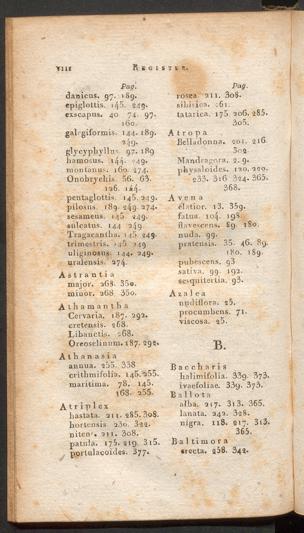 VIII REGISTER.
Pag.
danicus. 97. 189.
epiglottis. 145. 249.
exscapus. 40 74. 97.
160.
galegiformis. 144. 189.
249.
glycyphyllus. 97. 189
hamosus. 144. 249.
montanus. 160. 274.
Onobrychis. 56. 63.
126. 144.
pentaglottis. 145. 249.
pilosus. 189. 249. 274.
sesameus. 145 249.
sulcatus. 144 249.
Tragacantha. 145. 249.
trimestris. 145 249
uliginosus. 144. 249.
uralensis. 274.
Astrantia
major. 268. 350.
minor. 268. 350.
Athamantha
Cervaria. 187. 292.
cretensis. 268.
Libanotis. 268.
Oreoselinum. 187. 292.
Athanasia
annua. 255. 338
crithmifolia. 145. 255.
maritima. 78. 145.
168. 255.
Atriplex
hastata. 211. 285. 308.
hortensis 230. 322.
nitens. 211. 308.
patula. 175. 219. 315.
portulacoides. 377.
Pag.
rosea. 211. 308.
sibirica. 261.
tatarica. 175. 206. 285.
305.
Atropa
Belladonna. 201. 216.
302.
Mandragora. 2. 9.
physaloides. 120. 220.
233. 316. 324. 365.
368.
Avena
elatior. 13. 359.
fatua. 104. 198.
flavescens. 89. 180.
nuda. 99.
pratensis. 35. 46. 89.
180. 189.
pubescens. 93.
sativa. 99. 192.
sesquitertia. 93.
Azalea
nudiflora. 25.
procumbens. 71.
viscosa. 25.
B.
Baccharis
halimifolia. 339. 373.
ivaefoliae. 339. 373.
Ballota
alba. 217. 313. 365.
lanata. 242. 328.
nigra. 118. 217. 313.
365.
Baltimora
erecta. 258. 342.